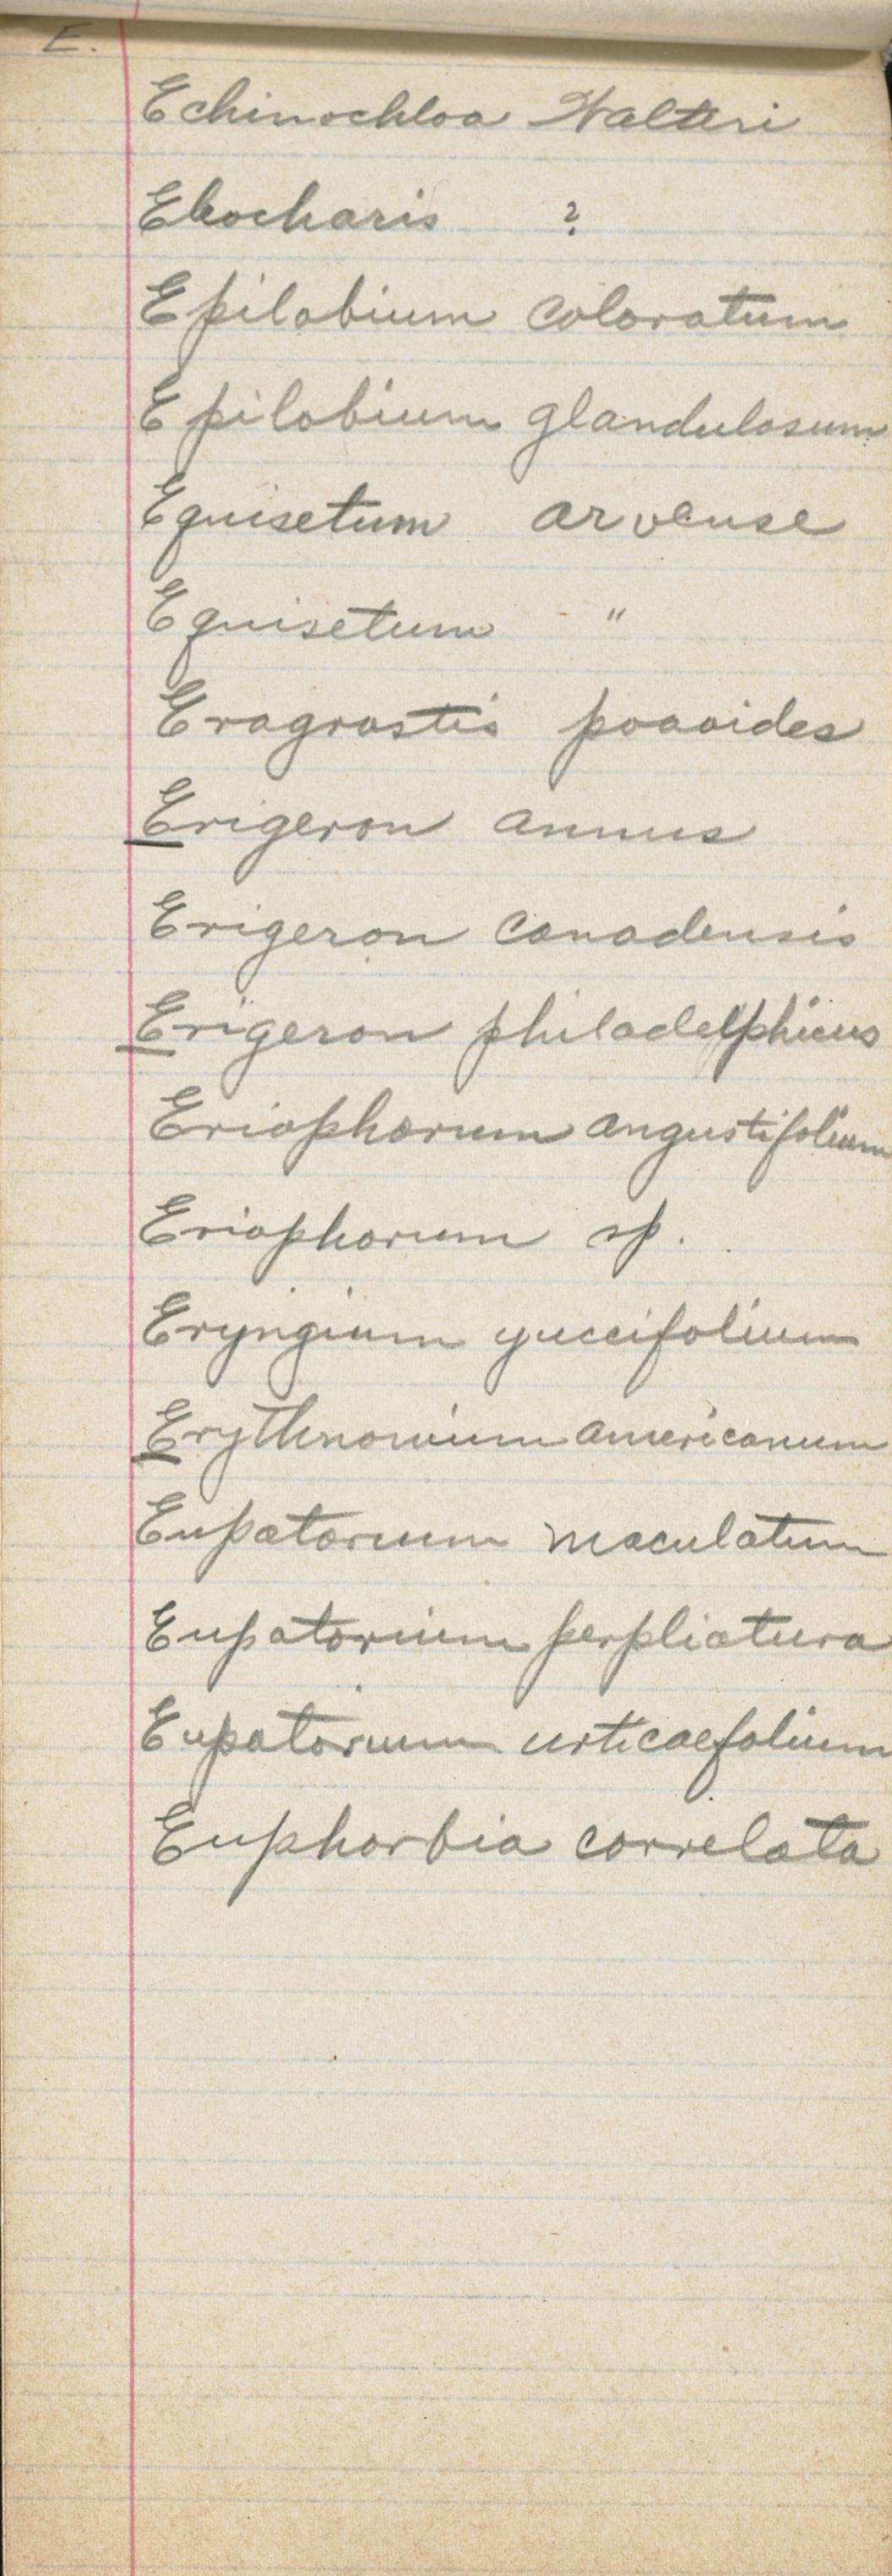 E.
Echinochloa Walteri
Eleocharis ?
Epilobium coloratum
Epilobium glandulosum
Equisetum arvense
Equisetum "
Eragrostis poaoides
Erigeron annus
Erigeron canadensis
Erigeron philadelphicus
Eriophorum angustifolium
Eriophorum sp.
Eryngium yuccifolium
Erythronium americanum
Eupatorium maculatum
Eupatorium perpliatura
Eupatorium urticaefolium
Euphorbia correlata